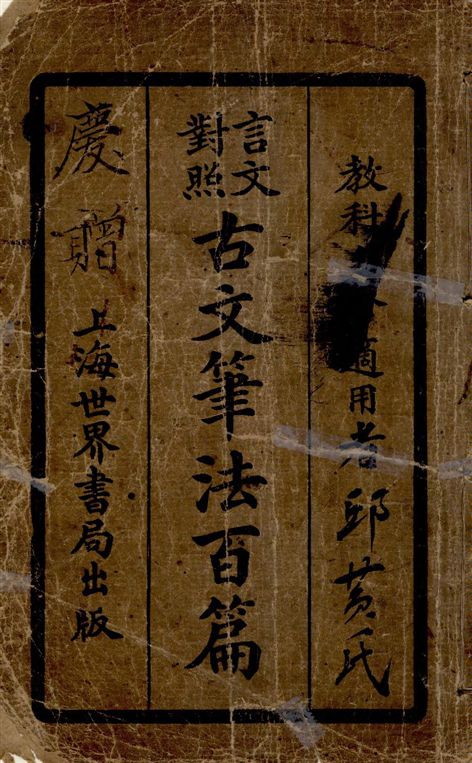 教科適用者邱黃氏
言文
對照
古文筆法百篇
慶贈
上海世界書局出版